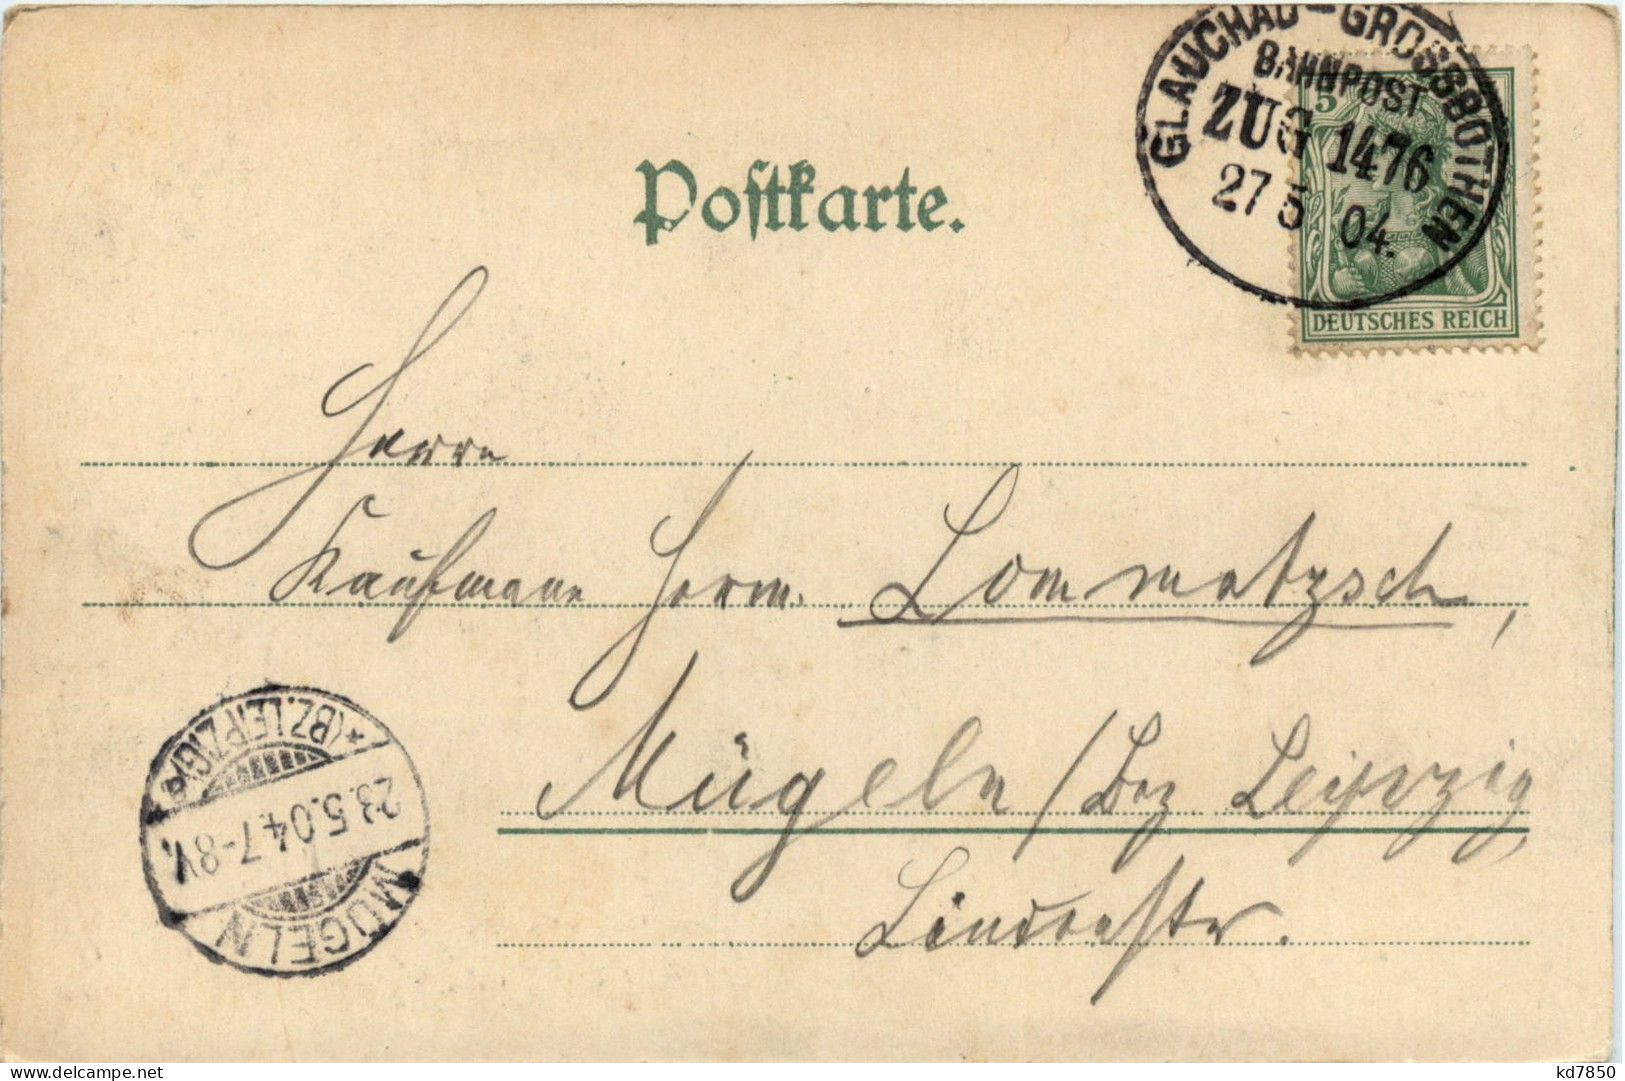 GLAUCHAU-GROSSBOTHEN
BAHNPOST
ZUG 1476
27 5 04.
5
DEUTSCHES REICH
Postkarte.
Herrn
Kaufmann Herm. Lommatzsch,
Mügeln / Bez Leipzig
Lindenstr.
*(BZ.LEIPZIG)a
23.5.04.7-8V.
MÜGELN
kd7850